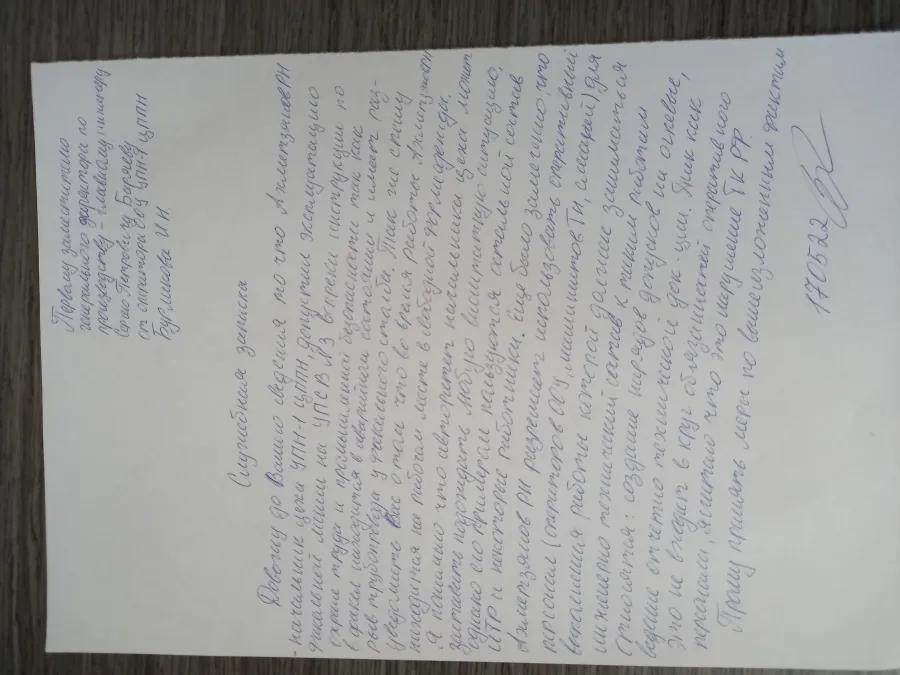 Первому заместителю
генерального директора по
производству - главному инженеру
Петровичу
от оператора ООУ УПН-1 ЦППН
Бурлакова И.Н.
Служебная записка
Довожу до Вашего сведения то что Ахметзянов РН
- начальник цеха УПН-1 ЦППН, допустил эксплуатацию
факельной линии на УПСВ №3 в преки инструкции по
охране труда и промышленной безопасности так как
факел находится в аварийном состоянии и имеет раз-
рыв трубопровода у факельного столба. Так же спешу
уведомить Вас о том что во время работы Ахметзянов РН
находится на рабочем месте в свободной форме одежды.
Я понимаю что авторитет начальника цеха может
заставить подождать любую ситуацию,
однако его примерам пользуются остальной состав
ИТР и некоторые работники. Ещё было замечено что
Ахметзянов РН разрешает использовать оперативный
персонал (операторов ООУ, машинистов ТИ, слесарей) для
выполнения работы которой должны заниматься
инженерно технический состав к таким работам
относятся: создание нарядов допусков на огневые,
ведение отчетно технической док-ции. Так как
это не входит в круг обязанностей оперативного
персонала, я считаю что это нарушение ТК РФ.
Прошу принять меры по вышеизложенным фактам
170522